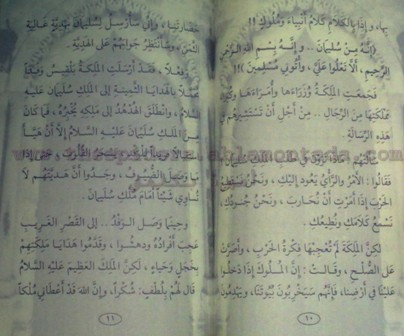 بهاء، وإذا بالكلام كلام أنبياء وملوك!!
(إنه من سليمان .. وإنه بسم الله الرحمن
الرحيم، ألا تعلوا علي، وأتوني مسلمين)!!
فجمعت الملكة وزراءها وأمراءها
مملكتها من الرجال .. من أجل أن تستشيرهم في
هذه الرسالة
فقالوا: الأمر والرأي يعود إليك، ونحن نستطيع
الحرب إذا أمرت أن نحارب، ونحن جنودك،
نسمع كلامك ونطيعك.
لكن الملكة لم تعجبها فكرة الحرب، وأصرت
على الصلح، وقالت: إن الملوك إذا دخلوا
علينا في أرضنا، فإنهم سيخربون بيوتنا، ويهدمون
٦٠
حضارتنا، وإني سأرسل لسليمان بهدية غالية
الثمن، وسأنتظر جوابهم على الهدية.
وفعلاً، فقد أرسلت الملكة بلقيس وفداً
محملاً بالهدايا الثمينة إلى الملك سليمان عليه
السلام، وانطلق الهدهد إلى ملكه يخبره، فما كان
من الملك سليمان عليه السلام إلا أن هيأ
ما وصلوا الضيوف، وجدوا أن هديتهم لا
تساوي شيئاً أمام ملك سليمان.
وحينما وصل الوفد .. إلى القصر الغريب
عجب أفراده ودهشوا، وقدموا هدايا ملكتهم
بخجل وحياء، لكن الملك العظيم عليه السلام
قال لهم بلطف: شكراً، وإن الله قد أعطاني ملكاً
٦١